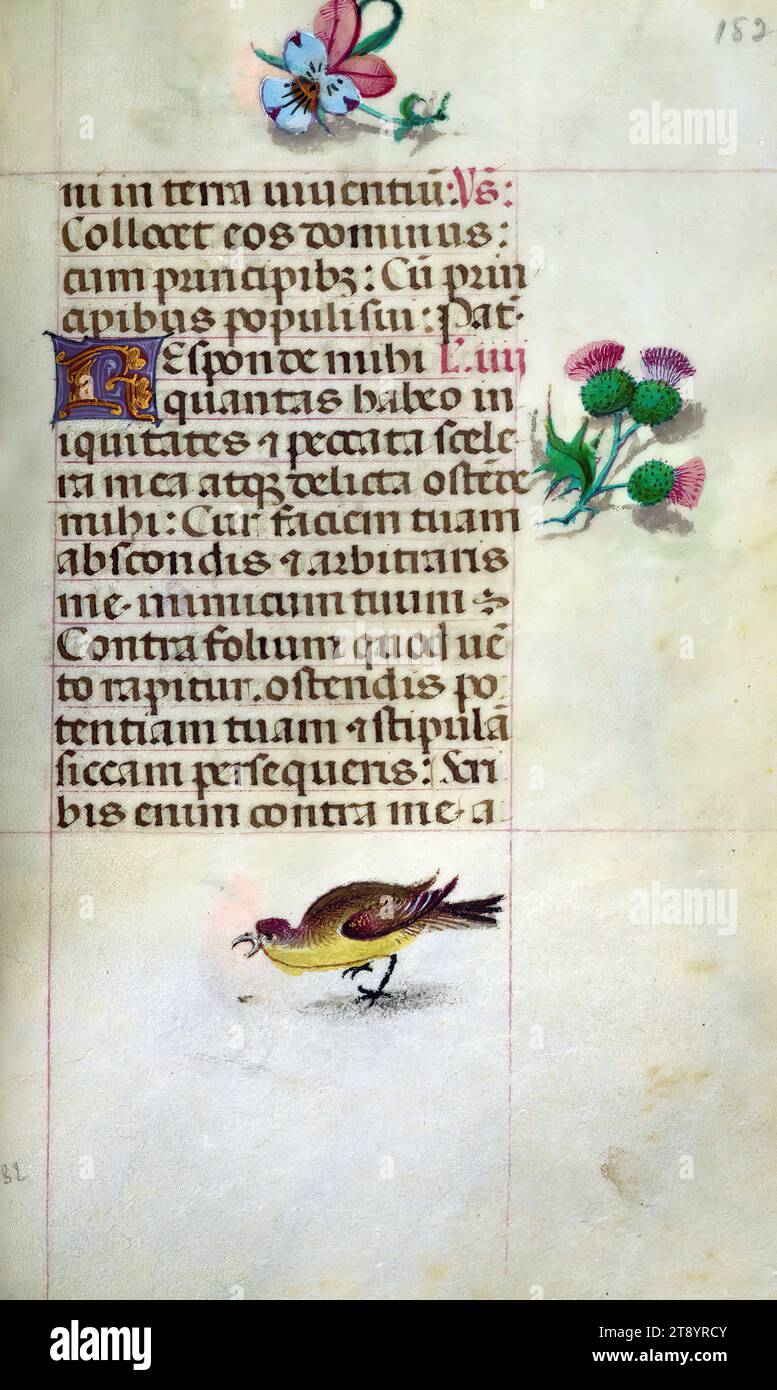 182
ni in terra uiuentiū: Vs̄:
Collocet eos dominus:
cum principibꝫ: Cū prin
cipibus populi sui: Pat̄
Responde mihi L. iiij
quantas habeo in
iquitates ⁊ peccata scele
ra mea atqꝫ delicta ostēde
mihi: Cur faciem tuam
abscondis ⁊ arbitraris
me inimicum tuum
Contra folium quod uē
to rapitur. ostendis po
tentiam tuam ⁊ stipulā
siccam persequeris: Scri
bis enim contra me a
alamy
Image ID: 2T8YRCY
www.alamy.com